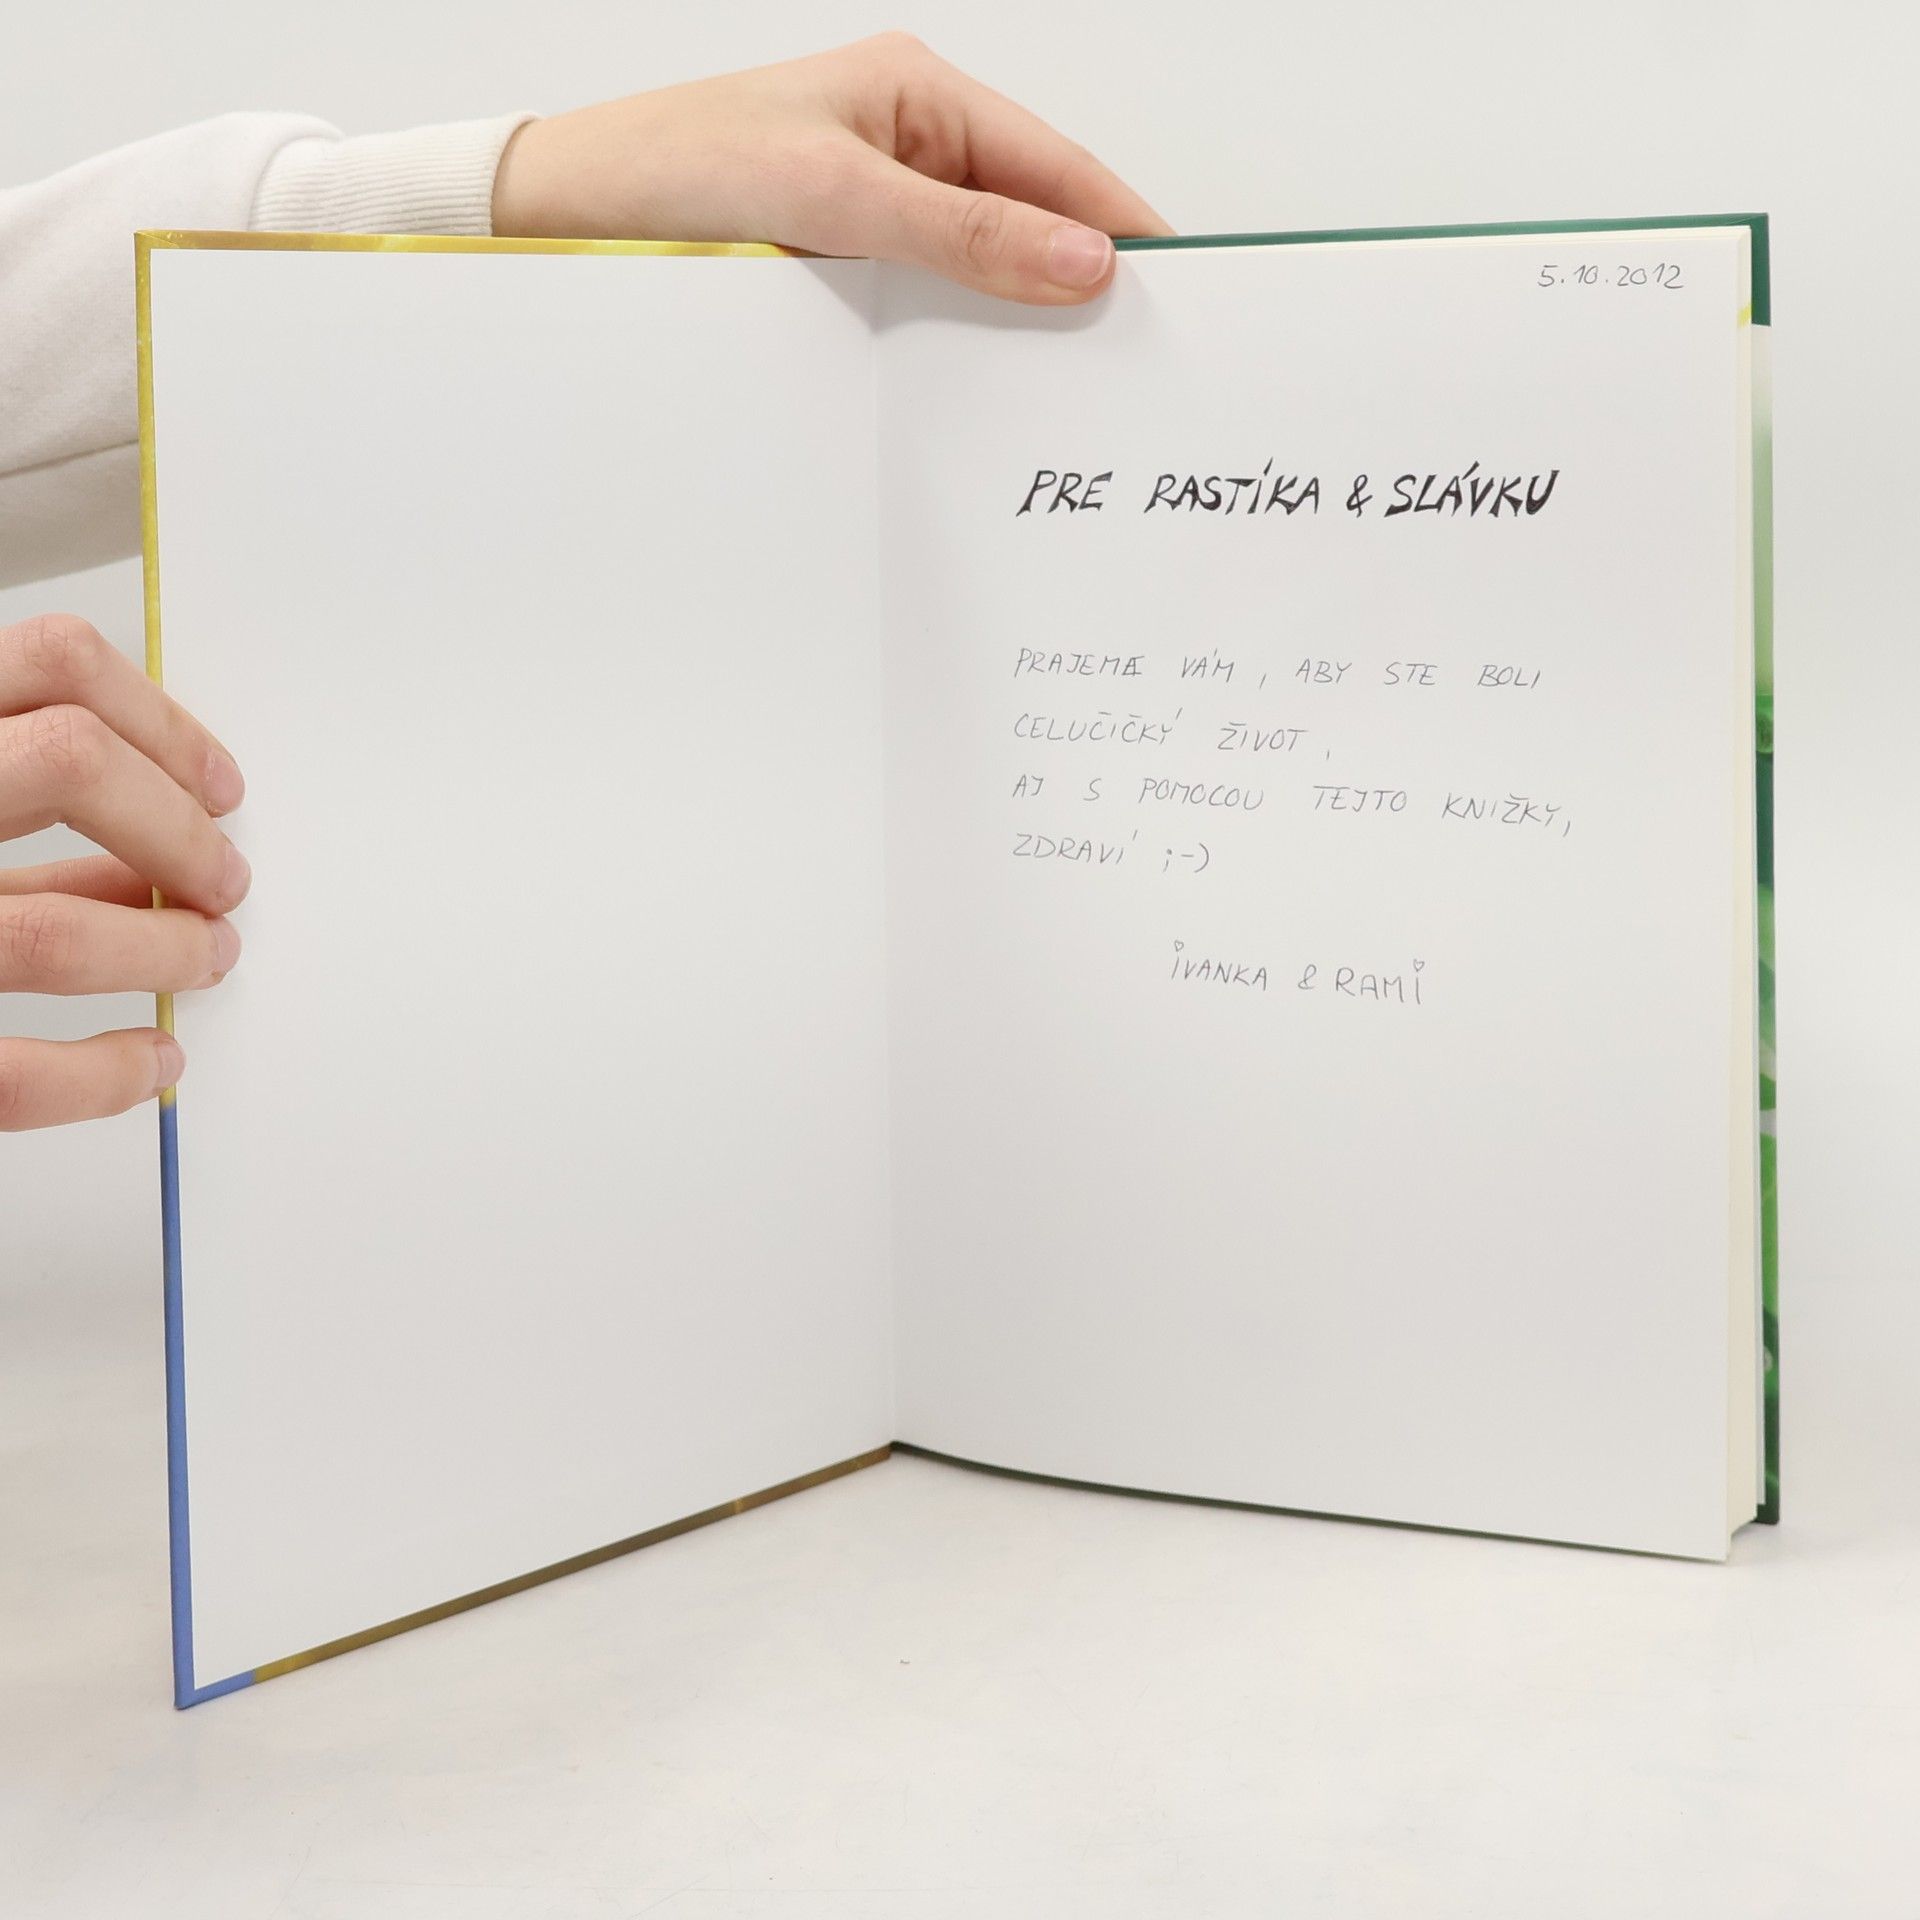 5.10.2012
PRE RASTÍKA & SLÁVKU
PRAJEME VÁM, ABY STE BOLI
CELUČIČKÝ ŽIVOT,
AJ S POMOCOU TEJTO KNIŽKY,
ZDRAVÍ ;-)
IVANKA & RAMI